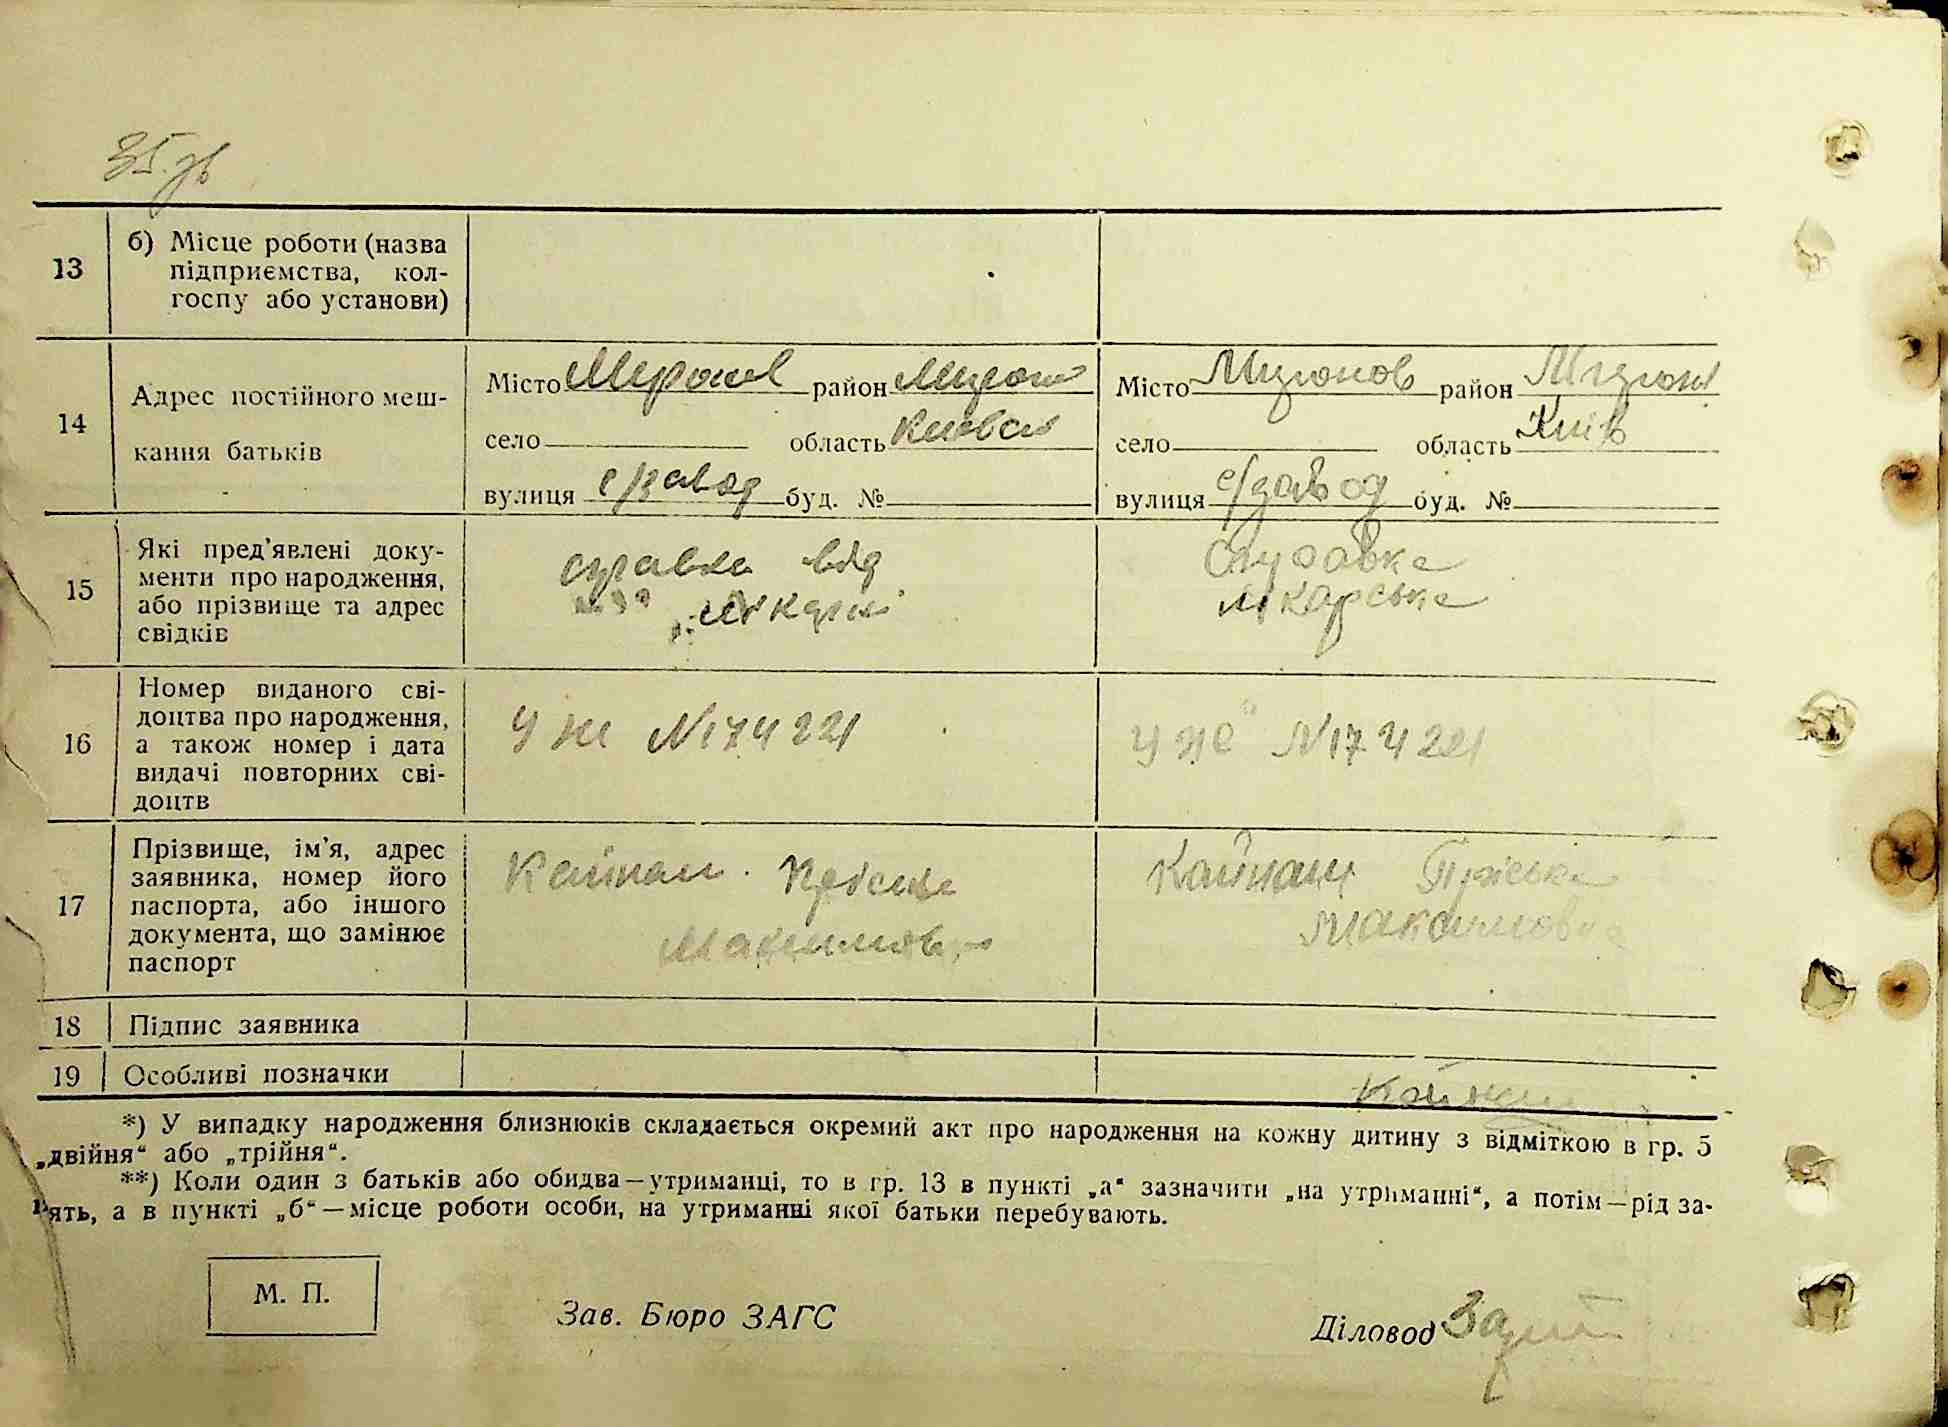 35.
13
б) Місце роботи (назва
підприємства, кол-
госпу або установи)
14
Адрес постійного меш-
кання батьків
Місто Миронов район Мирон
село область Киевск
вулиця с/завод буд. №
Місто Миронов район Мирон
село область Київ
вулиця с/завод буд. №
15
Які пред'явлені доку-
менти про народження,
або прізвище та адрес
свідків
справка від
лікарні
Справка
лікарська
16
Номер виданого сві-
доцтва про народження,
а також номер і дата
видачі повторних сві-
доцтв
УЖ №174221
УЖ №174221
17
Прізвище, ім'я, адрес
заявника, номер його
паспорта, або іншого
документа, що замінює
паспорт
Кайнаш Пріська
Максимовна
Кайнаш Пріська
Максимовна
18
Підпис заявника
19
Особливі позначки
Кайнаш
*) У випадку народження близнюків складається окремий акт про народження на кожну дитину з відміткою в гр. 5
„двійня“ або „трійня“.
**) Коли один з батьків або обидва—утриманці, то в гр. 13 в пункті „а“ зазначити „на утриманні“, а потім—рід за-
нять, а в пункті „б“—місце роботи особи, на утриманні якої батьки перебувають.
М. П.
Зав. Бюро ЗАГС
Діловод